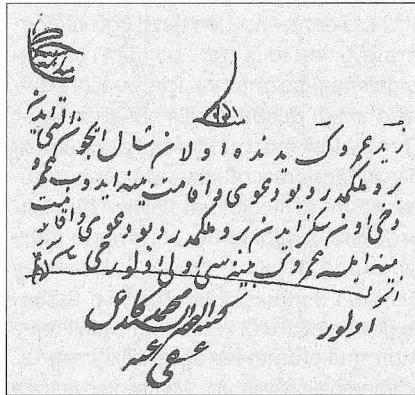 زيد عمروك يدنده اولان شال ايچون التى ايدن
برو ملكمدر ديو دعوى و اقامت بينه ايدوب عمرو
دخى اون سكز ايدن برو ملكمدر ديو دعوى و اقامت
بينه ايلسه عمروك بينه سى اولى اولور مى
الجواب
اولور
كتبه الفقير محمد كامل
عفى عنه